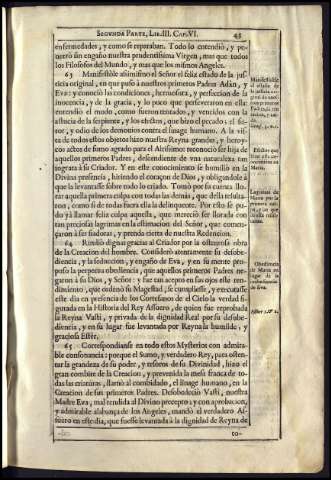 SEGUNDA PARTE, LIB. III. CAP. VI. 45
enfermedades, y como se reparaban. Todo lo entendió, y pe-
netrò sin engaño nuestra prudentissima Virgen, mas que todos
los Filosofos del Mundo, y mas que los mismos Angeles.
63 Manifestòle assimismo el Señor el feliz estado de la jus-
ticia original, en que pusò a nuestros primeros Padres Adàn, y
Eva: y conociò las condiciones, hermosura, y perfeccion de la
inocencia, y de la gracia, y lo poco que perseveraron en ella:
entendiò el modo, como fueron tentados, y vencidos con la
astucia de la serpiente, y los efectos, que hizo el pecado; el fu-
ror, y odio de los demonios contra el linage humano. A la vis-
ta de todos estos objetos hizo nuestra Reyna grandes, y heroy-
cos actos de sumo agrado para el Altissimo: reconociò ser hija de
aquellos primeros Padres, descendiente de una naturaleza tan
ingrata à su Criador. Y en este conocimiento se humillò en la
Divina presencia, hiriendo el coraçon de Dios, y obligandole à
que la levantasse sobre todo lo criado. Tomò por su cuenta llo-
rar aquella primera culpa con todas las demàs, que della resulta-
ron, como si de todas fuera ella la delinquente. Por esto se pu-
do yà llamar feliz culpa aquella, que mereciò ser llorada con
tan preciosas lagrimas en la estimacion del Señor, que comen-
çaron à ser fiadoras, y prenda cierta de nuestra Redencion.
64 Rindiò dignas gracias al Criador por la ostentosa obra
de la Creacion del hombre. Considerò atentamente su desobe-
diencia, y la seduccion, y engaño de Eva, y en su mente pro-
puso la perpetua obediencia, que aquellos primeros Padres ne-
garon à su Dios, y Señor: y fue tan acepto en sus ojos este ren-
dimiento, que ordenò su Magestad, se cumpliesse, y executasse
este dia en presencia de los Cortesanos de el Cielo la verdad fi-
gurada en la Historia del Rey Assuero, de quien fue reprobada
la Reyna Vasti, y privada de la dignidad Real por su desobe-
diencia, y en su lugar fue levantada por Reyna la humilde, y
graciosa Ester.
65 Correspondianse en todo estos Mysterios con admira-
ble consonancia: porque el Sumo, y verdadero Rey, para osten-
tar la grandeza de su poder, y tesoros de su Divinidad, hizo el
gran combite de la Creacion, y prevenida la mesa franca de to-
das las criaturas, llamò al combidado, el linage humano, en la
Creacion de sus primeros Padres. Desobedeciò Vasti, nuestra
Madre Eva, mal rendida al Divino precepto; y con aprobacion,
y admirable alabança de los Angeles, mandò el verdadero As-
suero en este dia, que fuesse levantada à la dignidad de Reyna de
to-
Efectos que
Lagrimas de
Obediencia
de Maria en
lugar de la
desobediencia
de Eva.